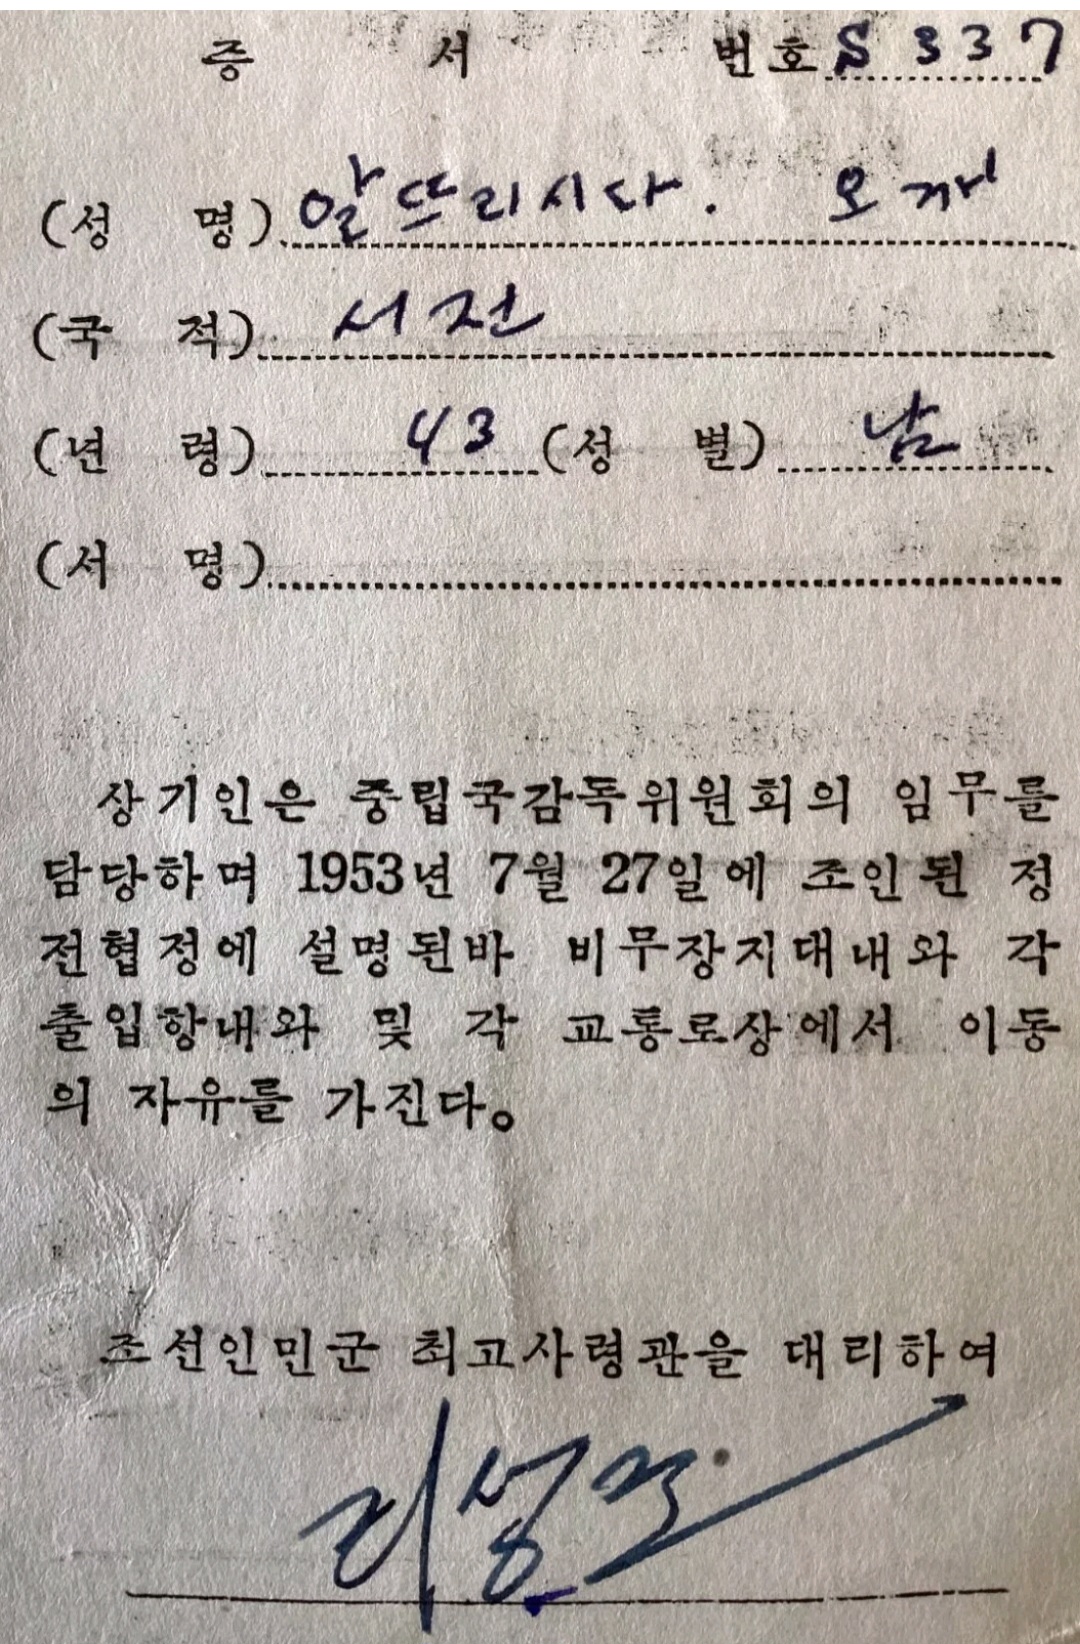 증 서 번호 S 337
(성 명) 알뜨리시다. 오께
(국 적) 서전
(년 령) 43 (성 별) 남
(서 명)
상기인은 중립국감독위원회의 임무를
담당하며 1953년 7월 27일에 조인된 정
전협정에 설명된바 비무장지대내와 각
출입항내와 및 각 교통로상에서 이동
의 자유를 가진다。
조선인민군 최고사령관을 대리하여